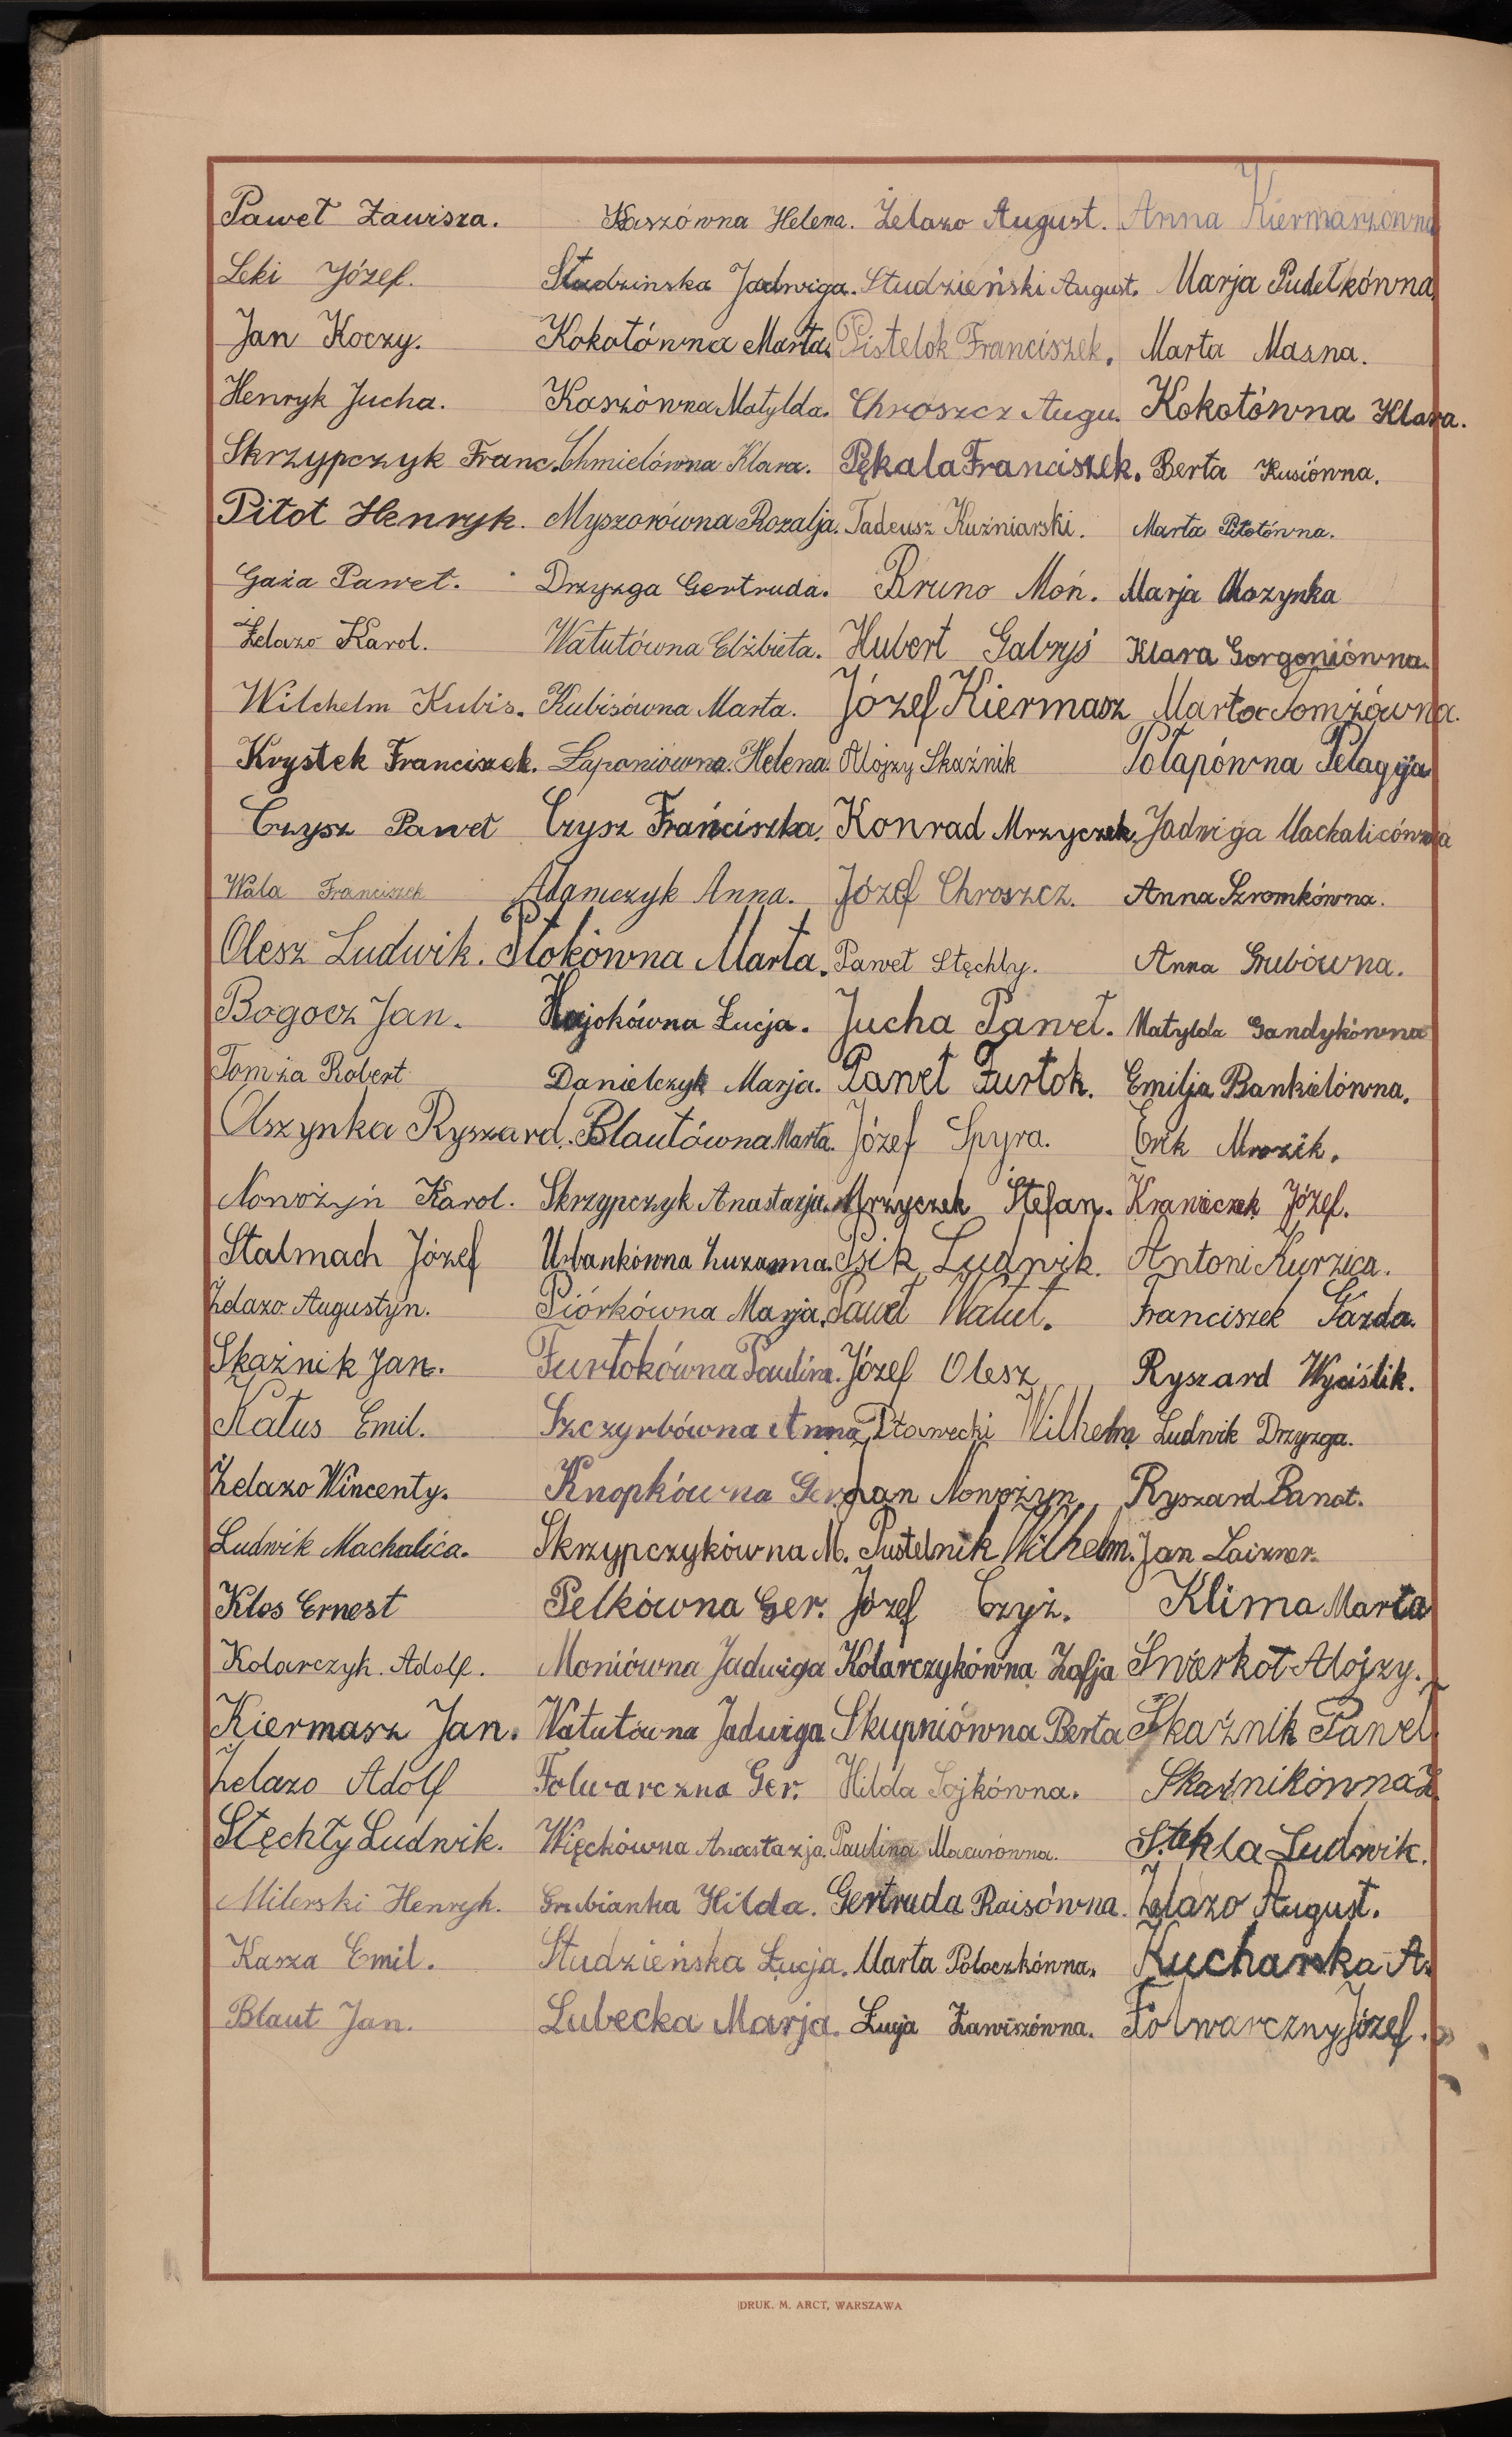 Paweł Zawisza. Kaszówna Helena. Żelazo August. Anna Kiermaszówna
Leki Józef. Studzinska Jadwiga. Studzieński August. Marja Pudełkówna
Jan Koczy. Kokotówna Marta. Pistelok Franciszek. Marta Masna.
Henryk Jucha. Kaszówna Matylda. Chroszcz Augu. Kokotówna Klara.
Skrzypczyk Franc. Chmielówna Klara. Pękala Franciszek. Berta Kusiówna.
Pitot Henryk. Myszorówna Rozalja. Tadeusz Kuźniarski. Marta Pitotówna.
Gaża Paweł. Drzyzga Gertruda. Bruno Moń. Marja Mozynka
Żelazo Karol. Watutówna Elżbieta. Hubert Gabryś Klara Gorgoniówna.
Wilchelm Kubis. Kubisówna Marta. Józef Kiermasz Marta Tomżówna.
Krystek Franciszek. Łaponiówna Helena. Alojzy Skaźnik Potapówna Pelagja
Czysz Paweł Czysz Frańciszka. Konrad Mrzyczek. Jadwiga Machalicówna
Wala Franciszek Adamczyk Anna. Józef Chroszcz. Anna Szromkówna.
Olesz Ludwik. Ptokówna Marta. Paweł Stęchły. Anna Grubówna.
Bogocz Jan. Hajokówna Łucja. Jucha Paweł. Matylda Gandykówna
Tomża Robert Danielczyk Marja. Paweł Furtok. Emilja Bankielówna.
Olszynka Ryszard. Blautówna Marta. Józef Spyra. Eryk Mrozik.
Nowożyń Karol. Skrzypczyk Anastazja. Mrzyczek Stefan. Krawiczek Józef.
Stalmach Józef Urbankówna Zuzanna. Psik Ludwik. Antoni Kurzica.
Żelazo Augustyn. Piórkówna Marja. Paweł Watut. Franciszek Gazda.
Skaźnik Jan. Furtokówna Paulina. Józef Olesz Ryszard Wyciślik.
Katus Emil. Szczyrbówna Anna Pławecki Wilhelm Ludwik Drzyzga.
Żelazo Wincenty. Knopkówna Ger. Jan Nowożyn. Ryszard Banot.
Ludwik Machalica. Skrzypczykówna M. Pustelnik Wilhelm. Jan Laizner.
Klos Ernest Pelkówna Ger. Józef Czyż. Klima Marta
Kolarczyk. Adolf. Moniówna Jadwiga Kolarczykówna Zofja Świerkot Alojzy.
Kiermasz Jan. Watutówna Jadwiga Skupniówna Berta Skaźnik Paweł
Żelazo Adolf Folwarczna Ger. Hilda Sojkówna. Skaźnikówna Ł
Stęchły Ludwik. Więckówna Anastazja. Paulina Macurówna. Stokla Ludwik.
Milerski Henryk. Grubianka Hilda. Gertruda Raisówna. Żelazo August.
Kasza Emil. Studzieńska Łucja. Marta Poloczkówna. Kucharska A.
Blaut Jan. Lubecka Marja. Łucja Zawiszówna. Folwarczny Józef.
DRUK. M. ARCT, WARSZAWA